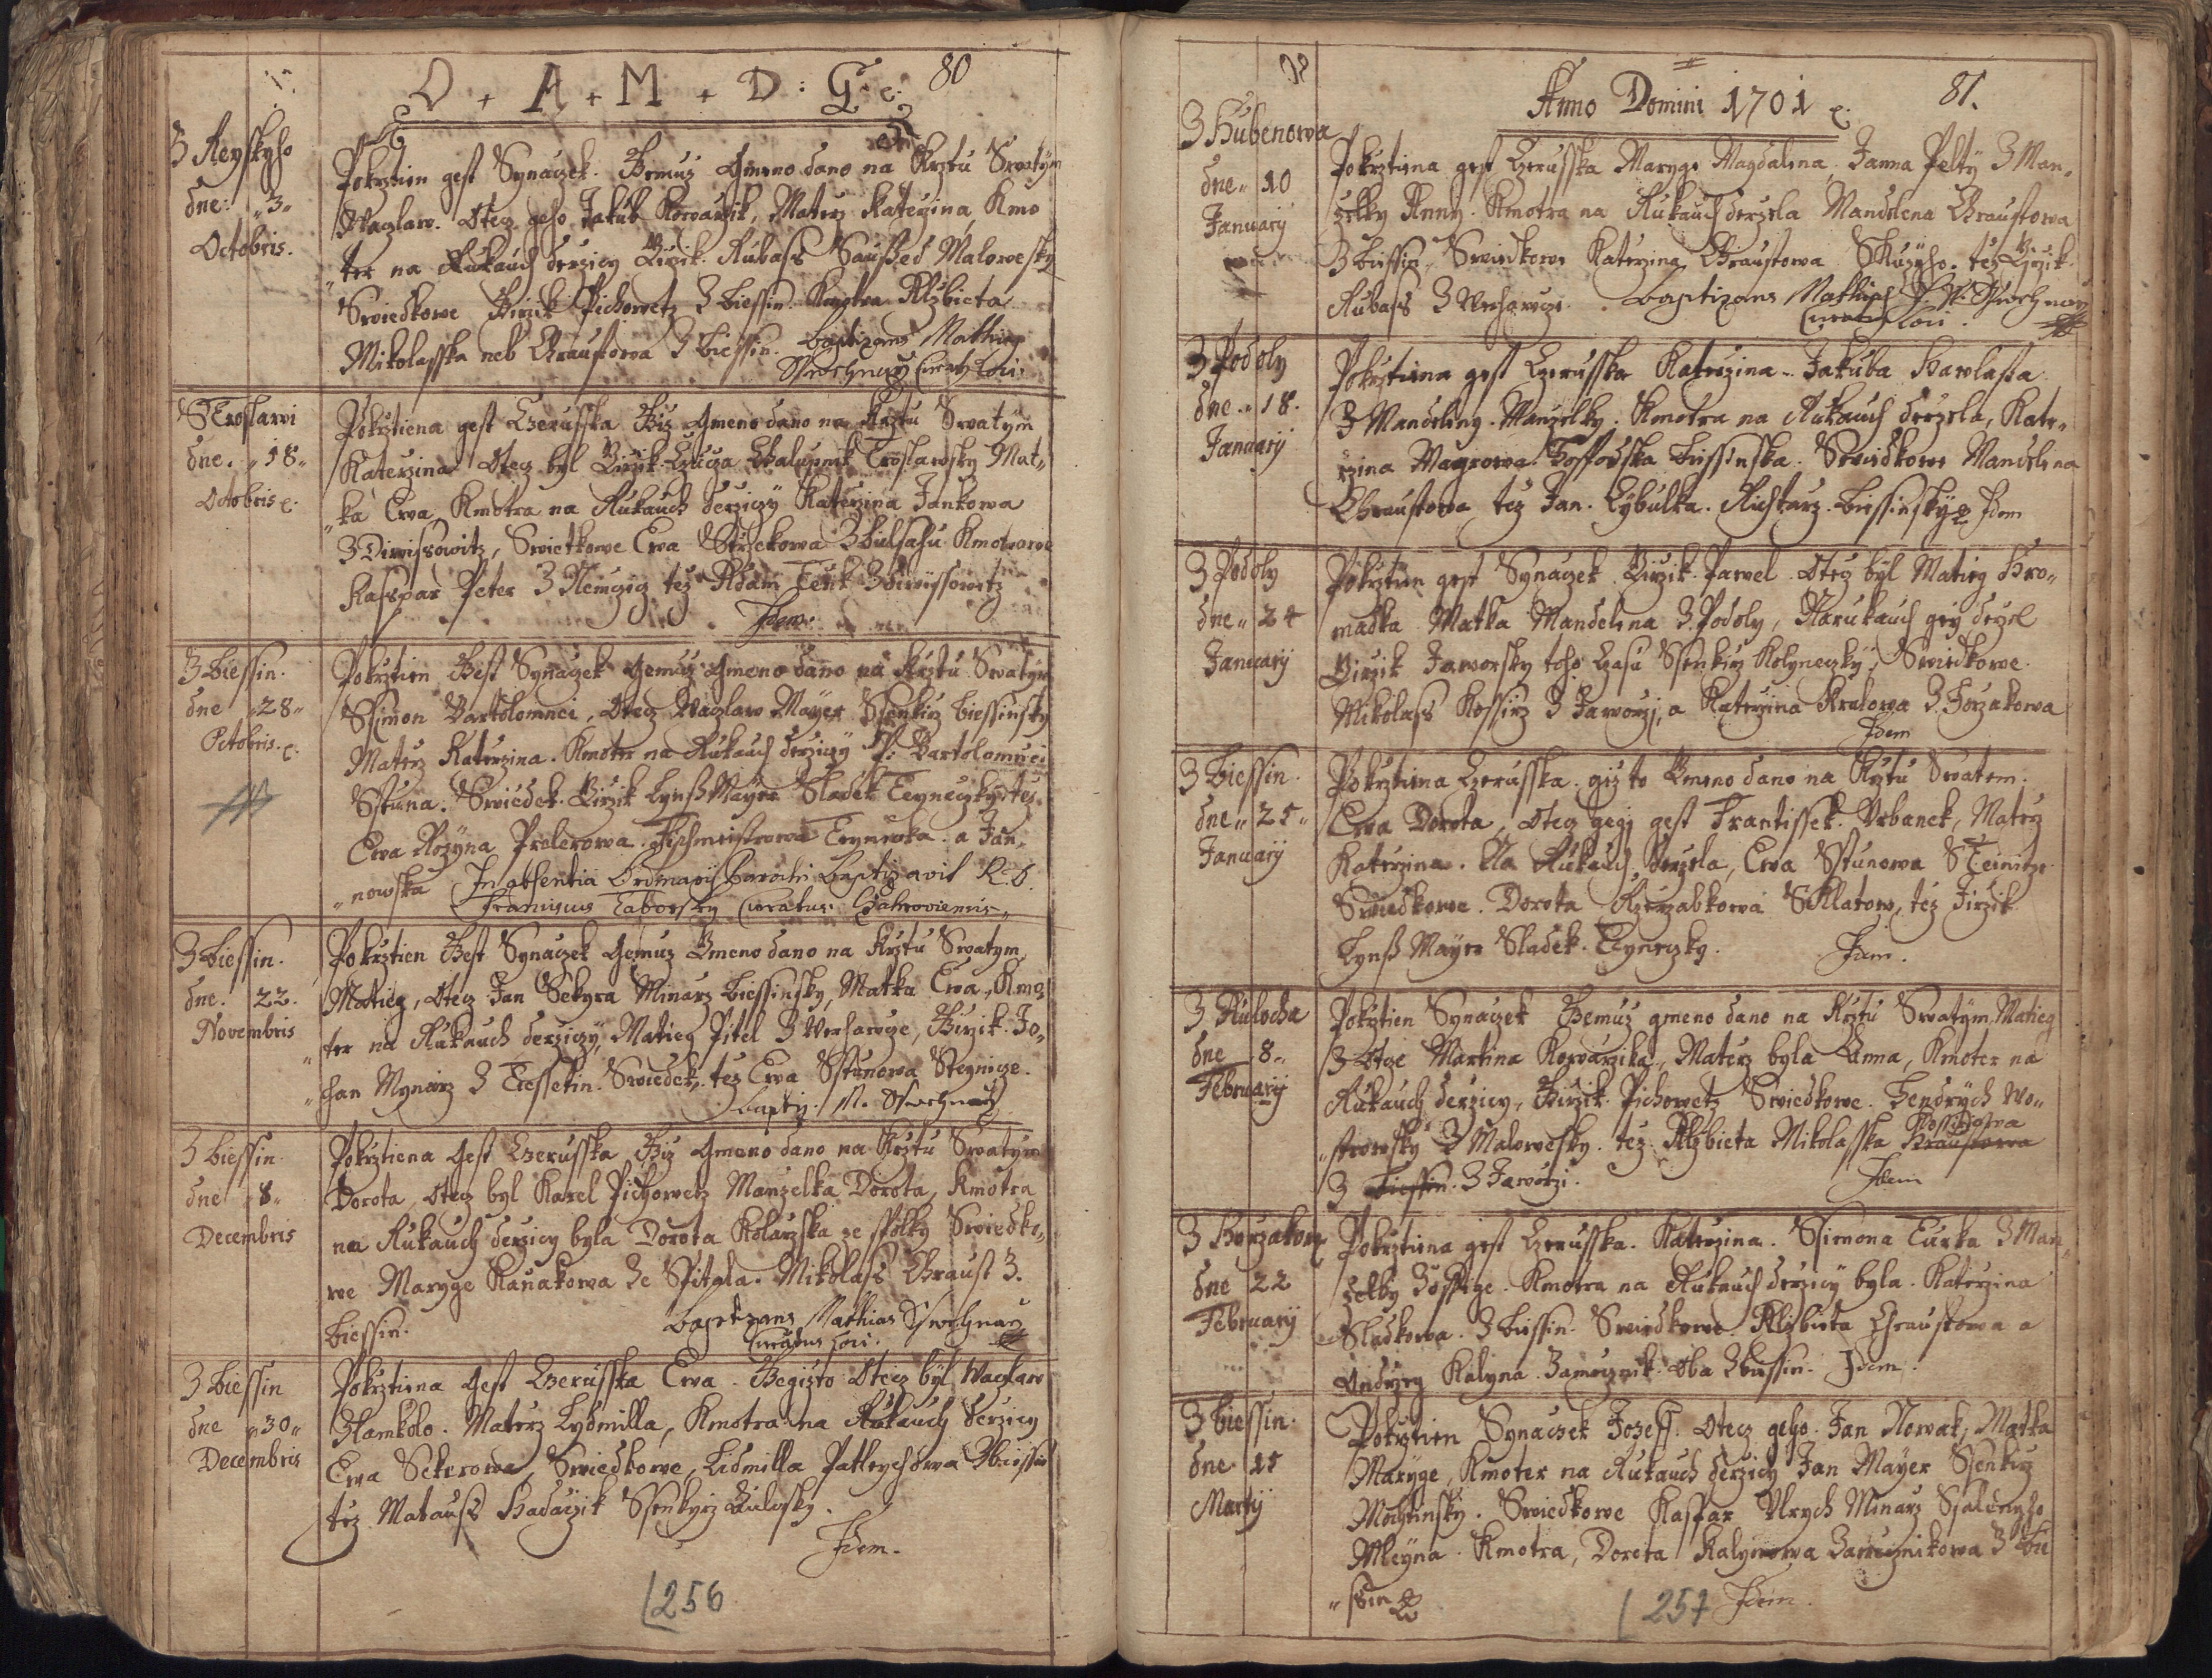 O + A + M + D : G: c: 80
Z Reyskyho
dne: „3„
Octobris.
Pokrztien gest Synaczek. Gemuz Gmeno dano na Krztu Swatym
Waczlaw. Otecz geho Jakub Kowarzik, Materz Kateržina, Kmo
„ter na Rukauch derziczy Girzik Rubass Saused Malowesky
Swiedkowe Girzik Pichowetz Z Biessin. Kmotra Alzbieta
Mikolasska neb Chraustowa Z Biessin. Baptizans Mathias
Curatus Loci.
S Troslawi
dne. „18„
Octobris c:
Pokrztiena gest Czerusska Giz Gmeno dano na Krztu Swatym
Katerzina Otecz byl Girzik Chalupnik Troslawsky Mat„
„ka Ewa, Kmotra na Rukauch derziczy Katerzina Jankowa
Z Diwissowitz, Swietkowe Ewa Kmotrowe
Kasspar Peter Z Nemczicz tez Adam Z Diwissowitz
Idem.
Z Biessin.
dne „28„
Octobris. c:
Pokrztien Gest Synaczek Gemuz Gmeno dano na Krztu Swatym
Ssimon Bartolomnei, Otecz Waczlaw Mayer Ssenkirz Biessinsky
Materz Katerzina. Kmoter na Rukauch derziczy P: Bartolomnei
Sstuna. Swiedek Girzik Lynßmayer Sladek Teyneczky tez
Ewa Rozyna Prolerowa Fischmeistrowa Teynieczka a Jan„
„nowska In absentia Ordinarij Parochi Baptizavit R. D.
Franciscus Taborsky Curatus
Z Biessin.
dne. 22.
Novembris
Pokrztien Gest Synaczek Gemuz Gmeno dano na Krztu Swatym
Matieg, Otecz Jan Sekyra Minarz Biessinsky, Matka Ewa, Kmo„
„ter na Rukauch derziczy, Matieg Pitel Z Werhawcze, Girzik Jo„
„han Mynarz Z Tiessetin. Swiedek, tez Ewa Sstunowa Steynicze.
Baptiz. M.
Z Biessin
dne „8„
Decembris
Pokrztiena Gest Czerusska Giz Gmeno dano na Krztu Swatym
Dorota, Otecz byl Karel Pichowetz Manzelka Dorota, Kmotra
na Rukauch derziczy byla Dorota Kolarzka ze Spolky Swiedko„
we Maryge Kanakowa Ze Spitala. Mikolass Chraust Z.
Biessin. Baptizans Mathias
Curatus Loci.
Z Biessin
dne „30„
Decembris
Pokrztiena Gest Czerusska Ewa. Gegizto Otecz byl Waczlaw
Hamkolo. Materz Lydmilla, Kmotra na Rukauch derziczy
Ewa Sekerowa, Swiedkowe, Lidmilla Patlrychowa Z Biessin
tez Matauss Hadaczik Ssenkyrz
Idem.
256
Anno Domini 1701 c: 81.
Z Hubenowa
dne„ 10
January
Pokrztiena gest Czerusska Maryge Magdalena, Janna Pelty Z Man„
zelky Anny. Kmotra na Rukauch derzela Mandelena Chraustowa
Z Biessin, Swiedkowe Katerzina Chraustowa tez Girzik
Rubass Z Werhawcze. Baptizans Mathias
Curatus Loci.
Z Podoly
dne „18.
January
Pokrztiena gest Czerusska Katerzina. Jakuba Hawlasa
Z Mandeliny Manzelky. Kmotra na Rukauch derzela, Kate„
rzina Magrowa Biessinska. Swiedkowe Mandelina
Chraustowa tez Jan. Cybulka. Richtarz. Biessinsky Idem
Z Podoly
dne„ 24
January
Pokrztien gest Synaczek Girzik Pawel Otecz byl Matieg Hro„
madka Matka Mandelena Z Podoly, Na rukauch gey derzel
Girzik Jaworsky toho Czasu Ssenkirz Kolyneczky, Swiedkowe.
Mikolass Kossirz Z Jaworzj, a Katerzina Kralowa Z Horzakowa
Idem
Z Biessin.
dne„ 25„
January
Pokrztiena Czerusska. gizto Gmeno dano na Krztu Swatem.
Ewa Dorota, Otecz gegj gest Frantissek. Urbanek, Materz
Katerzina. Na Rukauch derzela, Ewa Sstunowa S Teinicze
Swiedkowe. Dorota S Klatow, tez Jirzik
Lynß Mayer Sladek. Teyneczky. Idem.
Z Kulocha
dne 8„
February
Pokrztien Synaczek Gemuz gmeno dano na Krztu Swatym Matieg
Z Otce Martina Kowarzika, Materz byla Anna, Kmoter na
Rukauch derziczy, Girzik Pichowetz Swiedkowe. Hendrych Wo„
„strowsky Z Malowesky. tez Alzbieta Mikolasska Chraustowa
Z Biessin. Z Jaworzi. Idem
Z Horzakowa
dne 22
February
Pokrztiena gest Czerusska. Katerzina. Ssimona Turka Z Man„
zelky Zoffige. Kmotra na Rukauch derziczy byla. Katerzina
Sladkowa. Z Biessin. Swiedkowe Alzbieta Chraustowa a
Ondrzeg Kalyna Zamecznik. Oba Z Biessin. Idem.
Z Biessin.
dne 15
Martij
Pokrztien Synaczek Joseff. Otecz geho. Jan Nowak, Matka
Maryge, Kmoter na Rukauch derziczy Jan Mayer Ssenkirz
Mochtinsky. Swiedkowe Kaspar Ulrych Minarz Ssaleneho
Mleyna. Kmotra, Dorota Kalynowa Zamecznikowa Z Bie
„ssin Idem.
257